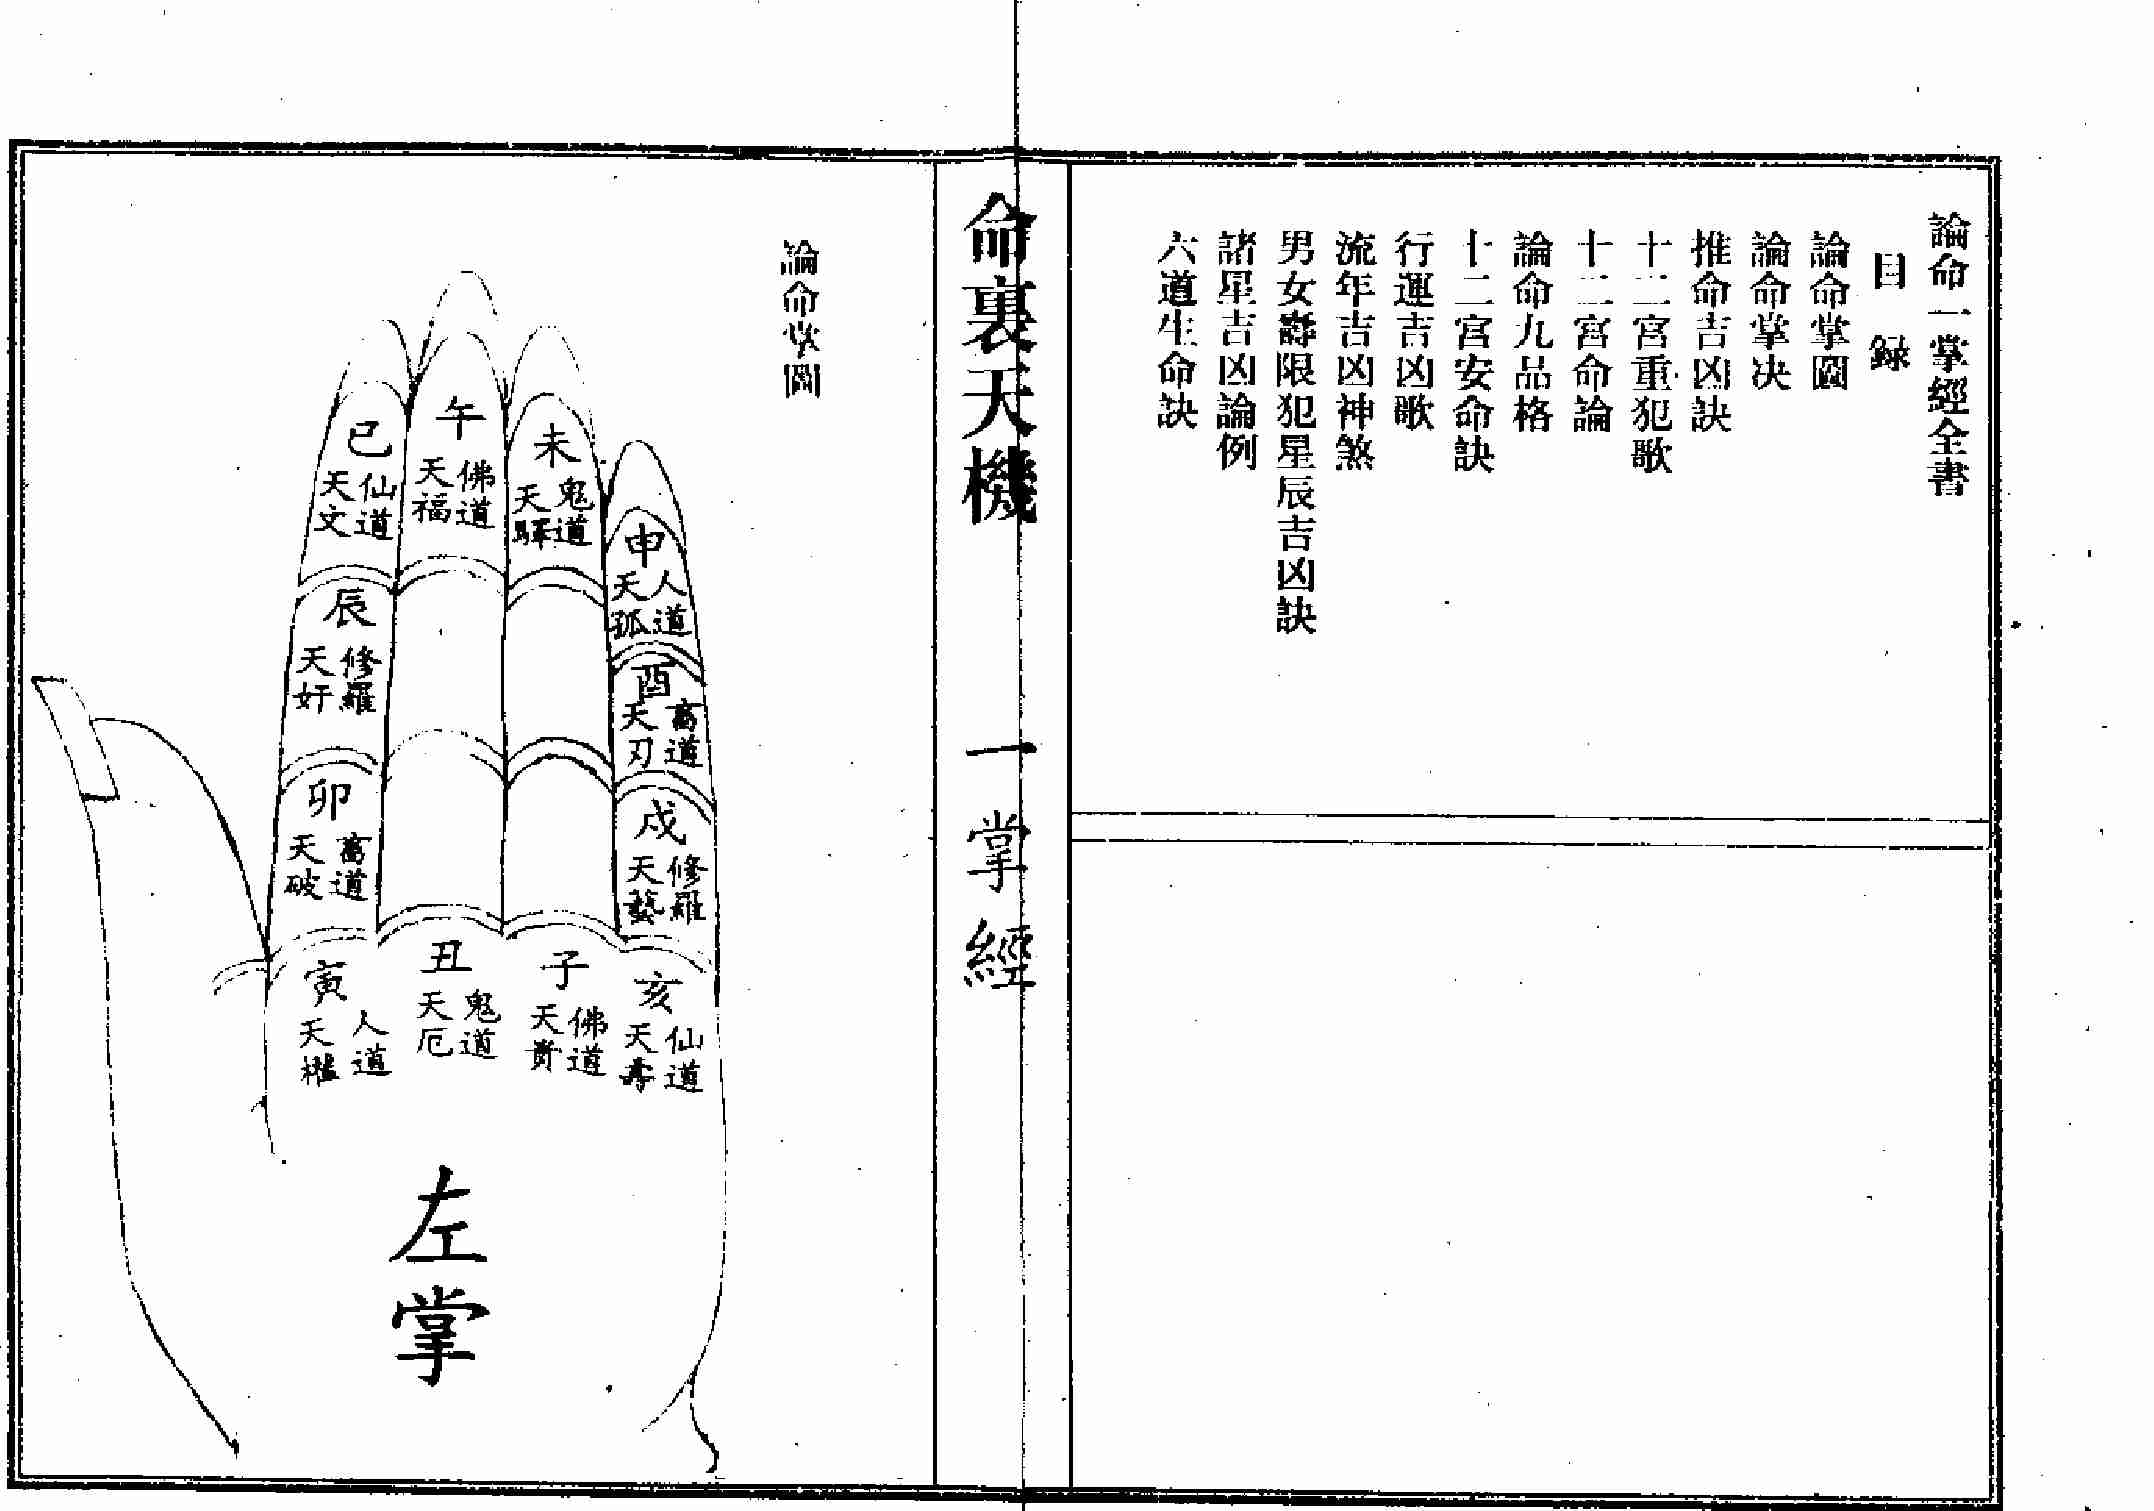 論命一掌經全書
目錄
論命掌圖
論命掌决
推命吉凶訣
十二宮重犯歌
十二宮命論
論命九品格
十二宮安命訣
行運吉凶歌
流年吉凶神煞
男女壽限犯星辰吉凶訣
諸星吉凶論例
六道生命訣
命裏天機
一掌經
論命掌圖
巳
仙道
天文
午
佛道
天福
未
鬼道
天驛
申
人道
天孤
辰
修羅
天奸
酉
畜道
天刃
卯
畜道
天破
戌
修羅
天藝
寅
人道
天權
丑
鬼道
天厄
子
佛道
天貴
亥
仙道
天壽
左掌